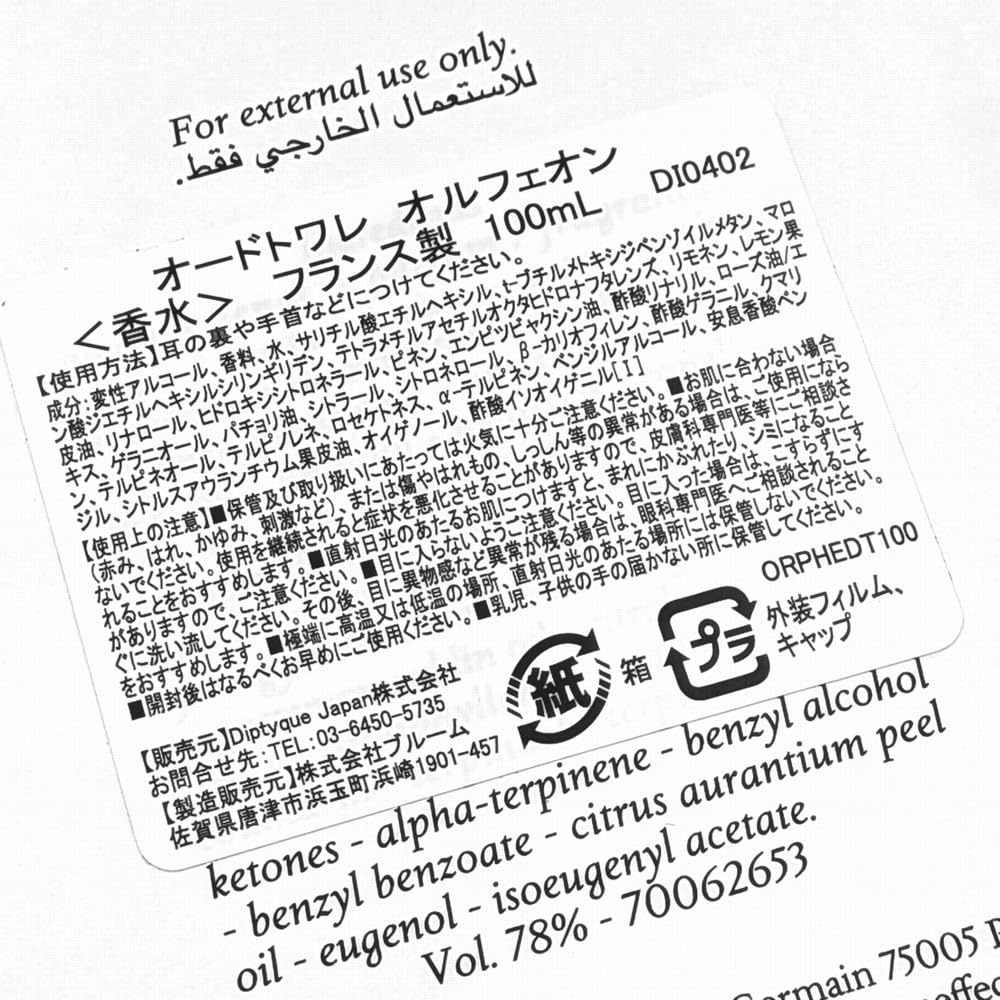 For external use only.
للاستعمال الخارجي فقط.
オードトワレ オルフェオン DI0402
＜香水＞ フランス製 100mL
【使用方法】耳の裏や手首などにつけてください。
成分：変性アルコール、香料、水、サリチル酸エチルヘキシル、t-ブチルメトキシジベンゾイルメタン、マロ
ン酸ジエチルヘキシルシリンギリデン、テトラメチルアセチルオクタヒドロナフタレンズ、リモネン、レモン果
皮油、リナロール、ヒドロキシシトロネラール、ピネン、エンピツビャクシン油、酢酸リナリル、ローズ油/エ
キス、ゲラニオール、パチョリ油、シトラール、シトロネロール、β-カリオフィレン、酢酸ゲラニル、クマリ
ン、テルピネオール、テルピノレネ、ロセケトネス、α-テルピネン、ベンジルアルコール、安息香酸ベン
ジル、シトルスアウランチウム果皮油、オイゲノール、酢酸イソオイゲニル[I]
【使用上の注意】■保管及び取り扱いにあたっては火気に十分ご注意ください。■お肌に合わない場合
（赤み、はれ、かゆみ、刺激など）、または傷やはれもの、しっしん等の異常がある場合は、ご使用になら
ないでください。使用を継続されると症状を悪化させることがありますので、皮膚科専門医等にご相談さ
れることをおすすめします。■直射日光のあたるお肌につけますと、まれにかぶれたり、シミになること
がありますので、ご注意ください。■目に入らないようご注意ください。目に入った場合は、こすらずにす
ぐに洗い流してください。その後、目に異物感など異常が残る場合は、眼科専門医へご相談されること
をおすすめします。■極端に高温又は低温の場所、直射日光のあたる場所には保管しないでください。
■開封後はなるべくお早めにご使用ください。■乳児、子供の手の届かない所に保管してください。
ORPHEDT100
紙 箱 プラ 外装フィルム、
キャップ
【販売元】Diptyque Japan株式会社
お問合せ先：TEL:03-6450-5735
【製造販売元】株式会社ブルーム
佐賀県唐津市浜玉町浜崎1901-457
ketones - alpha-terpinene - benzyl alcohol
- benzyl benzoate - citrus aurantium peel
oil - eugenol - isoeugenyl acetate.
Vol. 78% - 70062653
Germain 75005